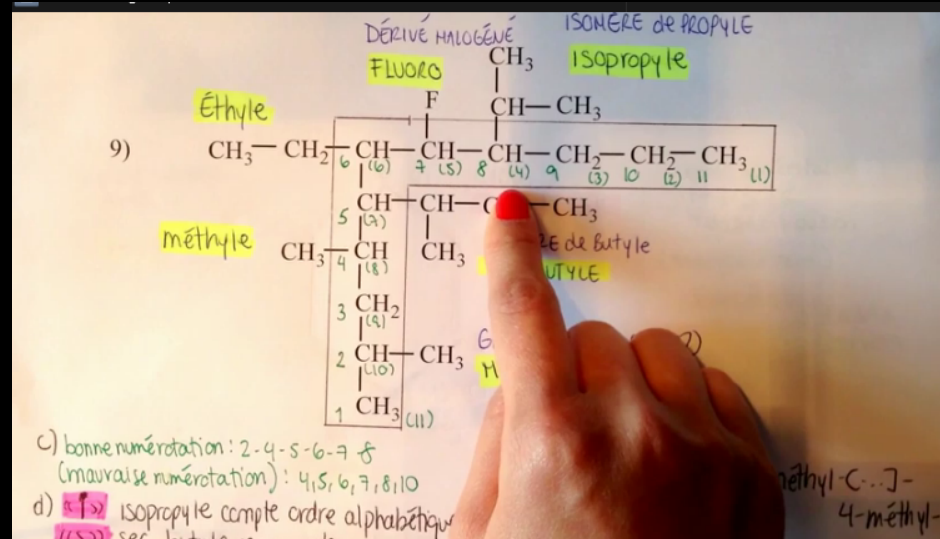 DÉRIVÉ HALOGÉNÉ ISOMÈRE de PROPYLE
FLUORO CH3 ISOPROPYLE
Éthyle F CH—CH3
9) CH3—CH2—CH—CH—CH—CH2—CH2—CH3
6 (6) 7 (5) 8 (4) 9 (3) 10 (2) 11 (1)
CH—CH— —CH3
5 (7)
méthyle CH3—CH CH3 de Butyle
4 (8) UTYLE
3 CH2
(9)
2 CH—CH3
(10)
1 CH3 (11)
c) bonne numérotation : 2-4-5-6-7 8
(mauvaise numérotation) : 4,5,6,7,8,10
méthyl-(...]-
d) isopropyle compte ordre alphabétiqu 4-méthyl-